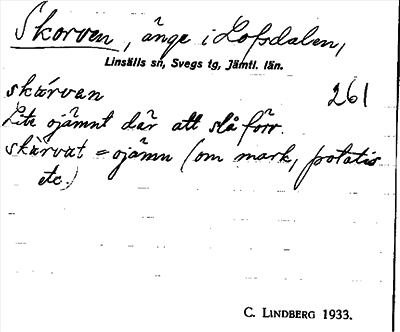 Skorven, änge i Lofsdalen,
Linsälls sn, Svegs tg, Jämtl. län.
skärvan 261
Lite ojämnt där att slå förr.
skärvat = ojämn (om mark, potatis
etc.)
C. LINDBERG 1933.